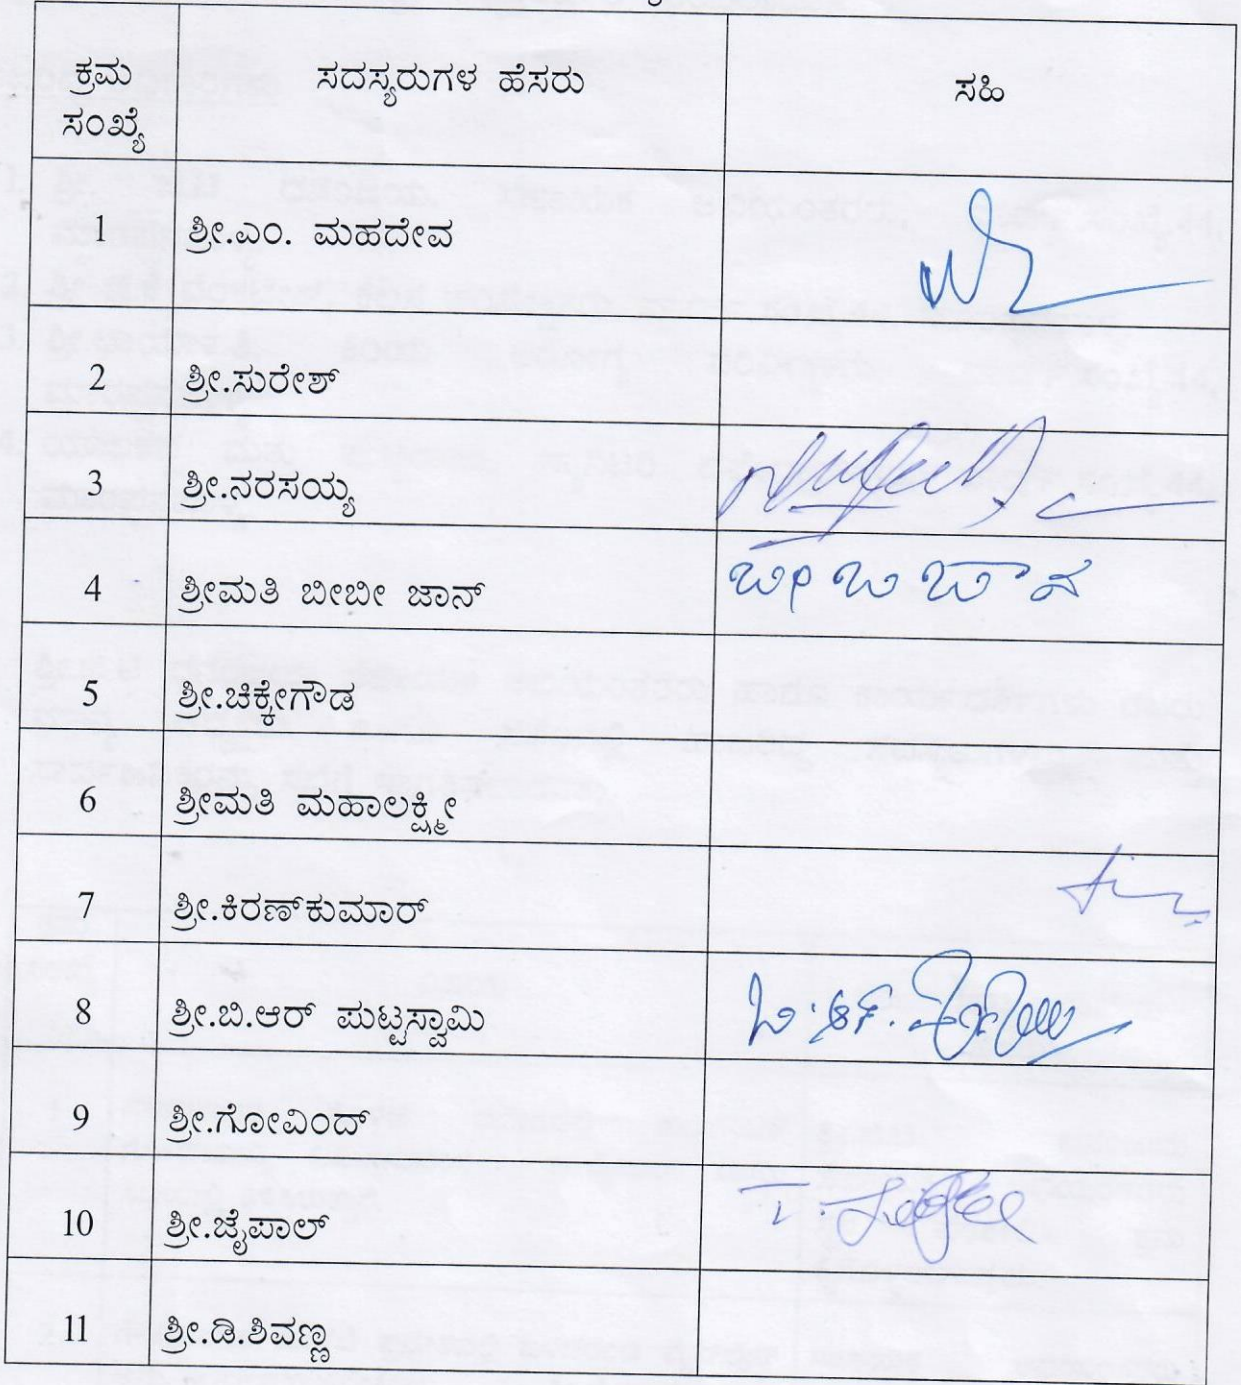 ಕ್ರಮ ಸಂಖ್ಯೆ ಸದಸ್ಯರುಗಳ ಹೆಸರು ಸಹಿ
1 ಶ್ರೀ.ಎಂ. ಮಹದೇವ
2 ಶ್ರೀ.ಸುರೇಶ್
3 ಶ್ರೀ.ನರಸಯ್ಯ
4 ಶ್ರೀಮತಿ ಬೀಬೀ ಜಾನ್
5 ಶ್ರೀ.ಚಿಕ್ಕೇಗೌಡ
6 ಶ್ರೀಮತಿ ಮಹಾಲಕ್ಷ್ಮೀ
7 ಶ್ರೀ.ಕಿರಣ್‌ಕುಮಾರ್
8 ಶ್ರೀ.ಬಿ.ಆರ್ ಪುಟ್ಟಸ್ವಾಮಿ
9 ಶ್ರೀ.ಗೋವಿಂದ್
10 ಶ್ರೀ.ಜೈಪಾಲ್
11 ಶ್ರೀ.ಡಿ.ಶಿವಣ್ಣ